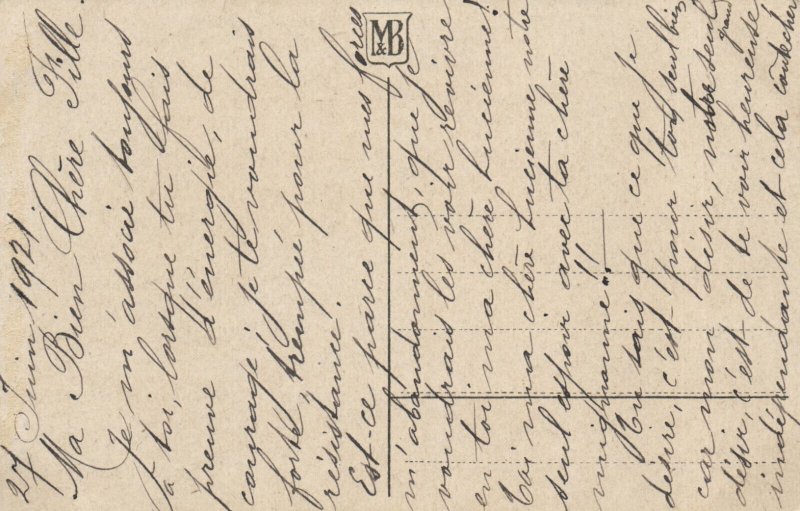 27 Juin 1921
Ma Bien Chère Fille.
Je m'associe toujours
à toi, lorsque tu fais
preuve d'énergie, de
courage; je te voudrais
forte, trempée pour la
résistance!
Est-ce parce que mes forces
m'abandonnent, que je
voudrais les voir revivre
en toi ma chère Lucienne!
Toi ma chère Lucienne notre
seul espoir avec ta chère
mignonne!!
Tu sais que ce que je
désire, c'est pour ton seul bien
car mon désir, notre seul grand
désir, c'est de te voir heureuse
indépendante et cela coûte cher
M&B